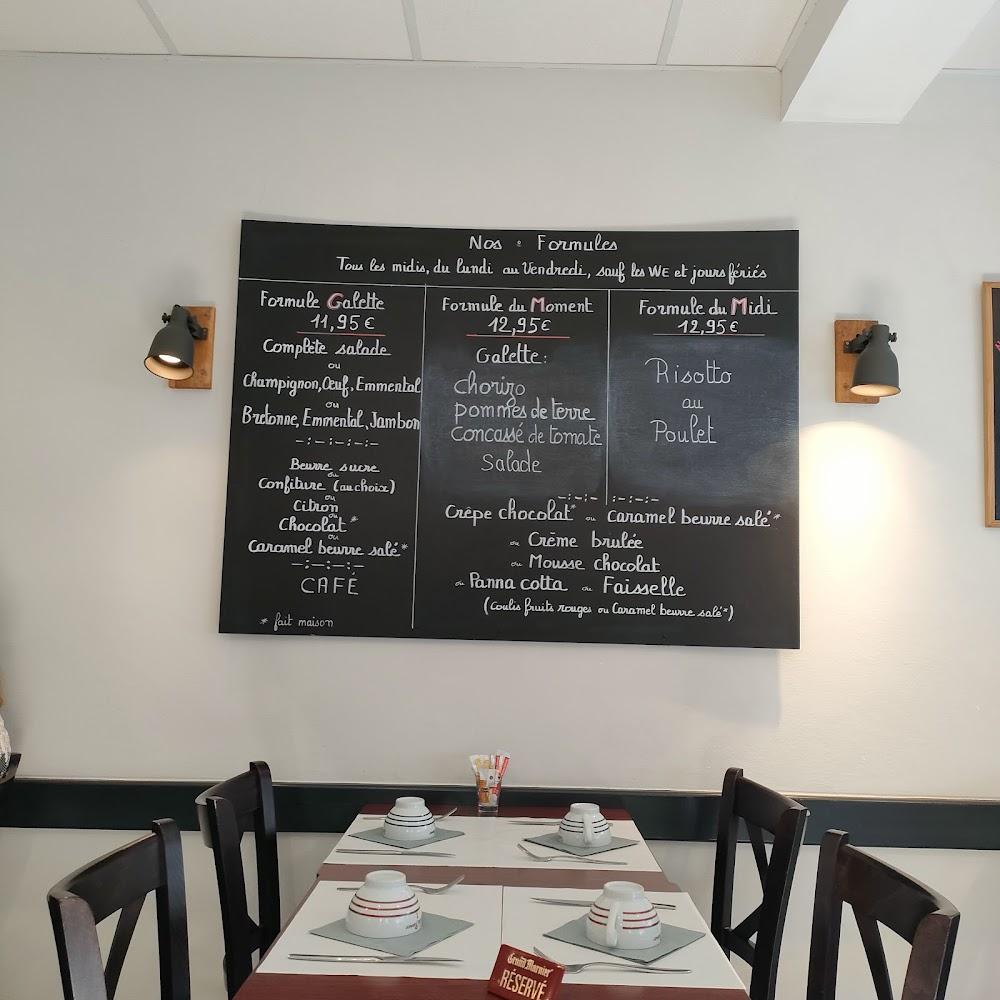 Nos • Formules
Tous les midis, du lundi au Vendredi, sauf les WE et jours fériés
Formule Galette
11,95 €
Complète salade
ou
Champignon, Œuf, Emmental
ou
Bretonne, Emmental, Jambon
-:-:-:-:-
Beurre sucre
ou
Confiture (au choix)
ou
Citron
ou
Chocolat*
ou
Caramel beurre salé*
-:-:-:-:-
CAFÉ
* fait maison
Formule du Moment
12,95 €
Galette:
chorizo
pommes de terre
Concassé de tomate
Salade
Formule du Midi
12,95 €
Risotto
au
Poulet
-:-:- :-:-:-
Crêpe chocolat* ou Caramel beurre salé*
ou Crème brulée
ou Mousse chocolat
ou Panna cotta ou Faisselle
(Coulis fruits rouges ou Caramel beurre salé*)
Grand Marnier
RÉSERVÉ